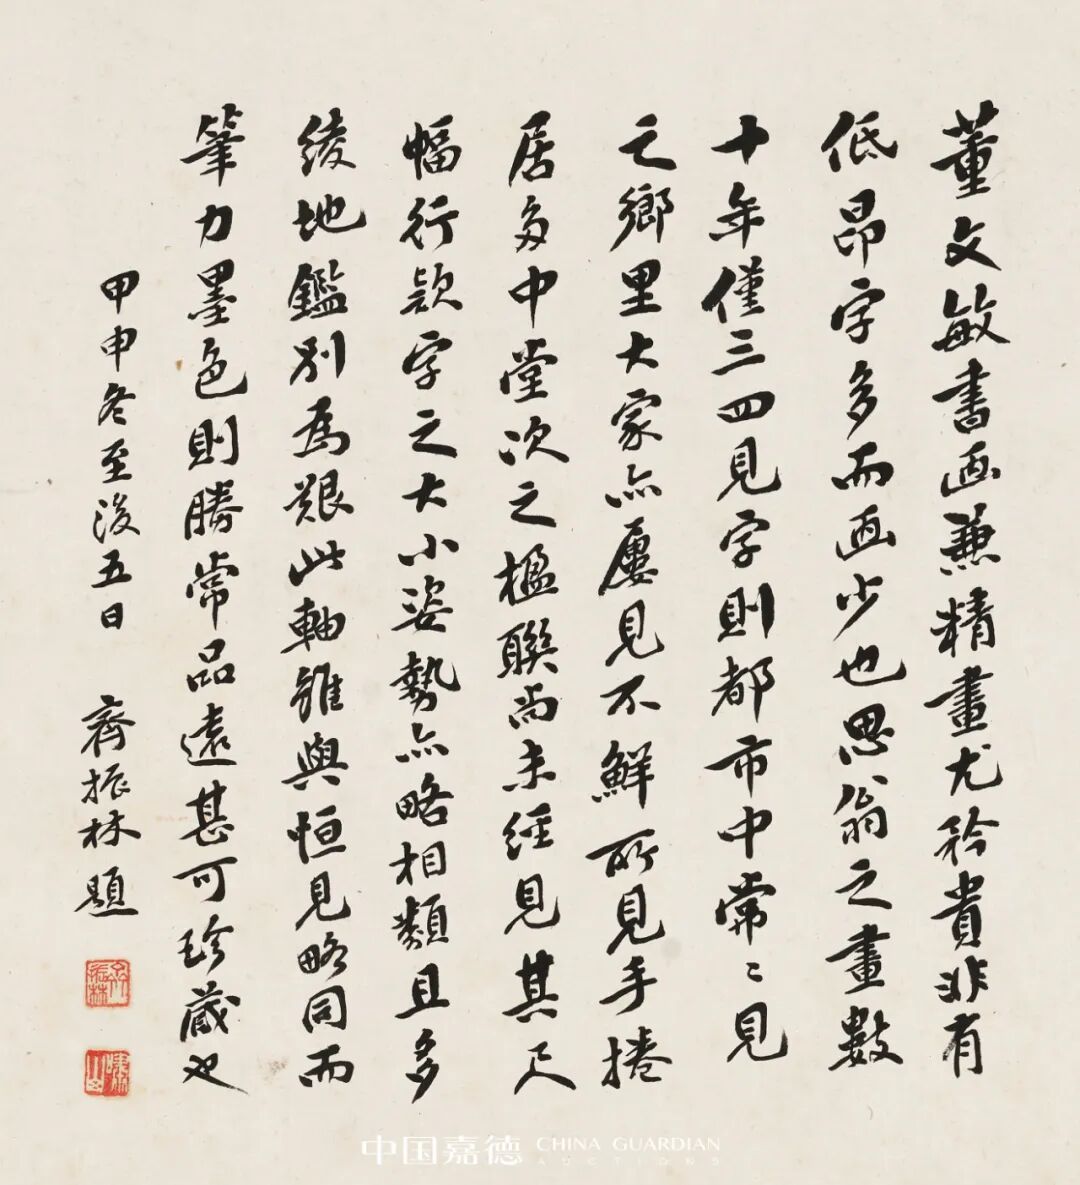 董文敏書画兼精畫尤矜貴非有
低昂字多而画少也思翁之畫數
十年僅三四見字則都市中常〻見
之鄉里大家亦屢見不鮮所見手捲
居多中堂次之楹聯尚未經見其尺
幅行款字之大小姿勢亦略相類且多
綾地鑑別為艱此軸雖與恒見略同而
筆力墨色則勝常品遠甚可珍藏也
甲申冬至後五日 齊振林題
齊振林
嘯山
中国嘉德 CHINA GUARDIAN
AUCTIONS